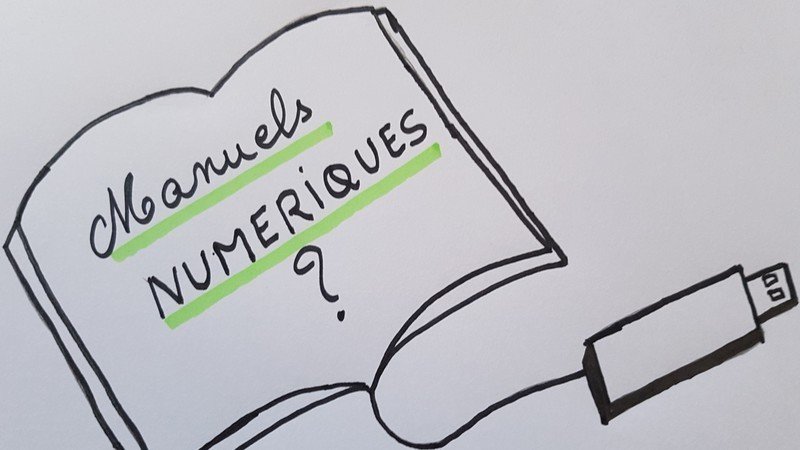 Manuels
NUMERiQUES
?